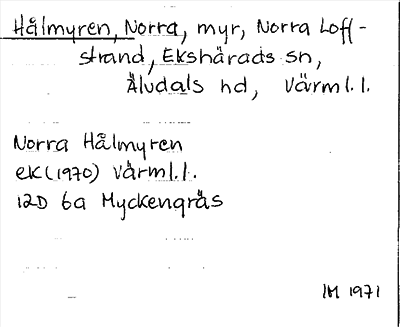 Hålmyren, Norra, myr, Norra Loff-
strand, Ekshärads sn,
Älvdals hd, Värml.l.
Norra Hålmyren
ek (1970) Värml.l.
12D 6a Myckengräs
IM 1971